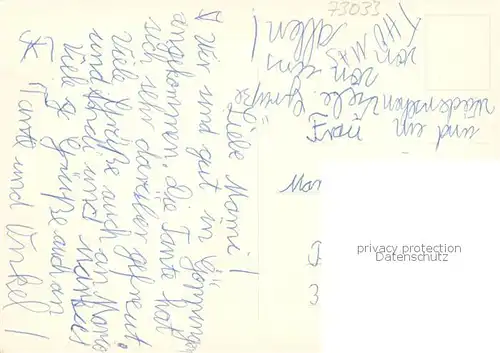 Liebe Mami!
Wir sind gut in Gönningen
angekommen, die Tante hat
sich sehr darüber gefreut.
Viele Grüße auch an Mama
und Ferdi und Markus
Viele Grüße auch an
Tante und Onkel!
und ein
Wiedersehen Viele Grüße
von uns
allen!
THOMAS
73033
privacy protection
Datenschutz